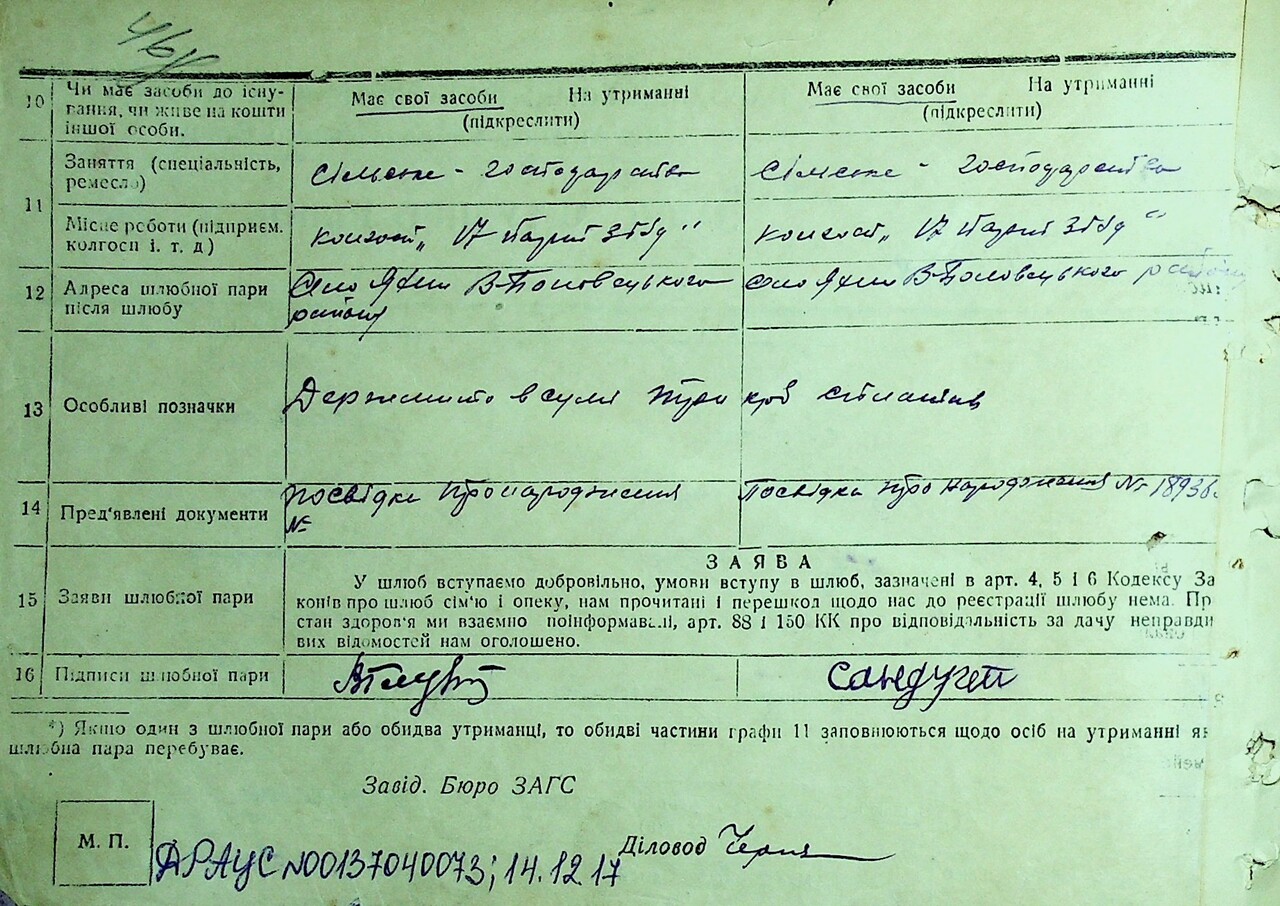 10 Чи має засоби до існування, чи живе на кошти іншої особи.
Має свої засоби На утриманні
(підкреслити)
Має свої засоби На утриманні
(підкреслити)
11 Заняття (спеціальність, ремесло)
Сільське - господарство
Сільське - господарство
Місце роботи (підприєм. колгосп і. т. д)
колгосп „17 Парт З'їзд“
колгосп „17 Парт З'їзд“
12 Адреса шлюбної пари після шлюбу
Село Яхни В-Половецького
району
село Яхни В-Половецького району
13 Особливі позначки
Держмито в сумі три крб
14 Пред'явлені документи
Посвідка про народження
№
Посвідка про народження № 18936
15 Заяви шлюбної пари
ЗАЯВА
У шлюб вступаємо добровільно, умови вступу в шлюб, зазначені в арт. 4, 5 і 6 Кодексу За
конів про шлюб сім'ю і опеку, нам прочитані і перешкод щодо нас до реєстрації шлюбу нема. Пр
стан здоров'я ми взаємно поінформавані, арт. 88 і 150 КК про відповідальність за дачу неправди
вих відомостей нам оголошено.
16 Підписи шлюбної пари
*) Якщо один з шлюбної пари або обидва утриманці, то обидві частини графи 11 заповнюються щодо осіб на утриманні як
шлюбна пара перебуває.
Завід. Бюро ЗАГС
М. П.
Діловод
ДРАЦС №00137040073; 14.12.17